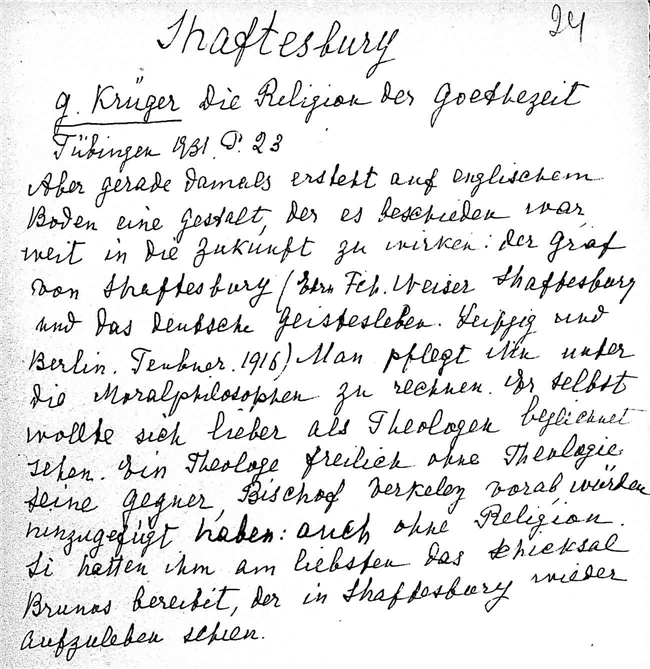 24
Shaftesbury
G. Krüger Die Religion der Goethezeit
Tübingen 1931. P. 23
Aber gerade damals ersteht auf englischem
Boden eine Gestalt, der es beschieden war,
weit in die Zukunft zu wirken: der Graf
von Shaftesbury ( Weiser Shaftesbury
und das deutsche Geistesleben. Leipzig und
Berlin. Teubner. 1916) Man pflegt ihn unter
die Moralphilosophen zu rechnen. Er selbst
wollte sich lieber als Theologen
sehen. Ein Theologe freilich ohne Theologie
seine Gegner, Bischof Berkeley vorab, würden
hinzugefügt haben: auch ohne Religion.
Si hatten ihm am liebsten das Schicksal
Brunos bereitet, der in Shaftesbury wieder
aufzuleben schien.